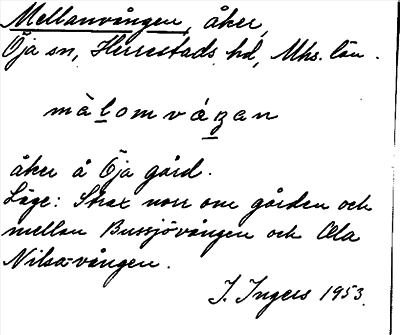 Mellanvången, åker,
Öja sn, Herrestads hd, Mhs. län.
màlomváŋan
åker å Öja gård.
Läge: Strax norr om gården och
mellan Bussjövången och Ola
Nilsavången.
I. Ingers 1953.